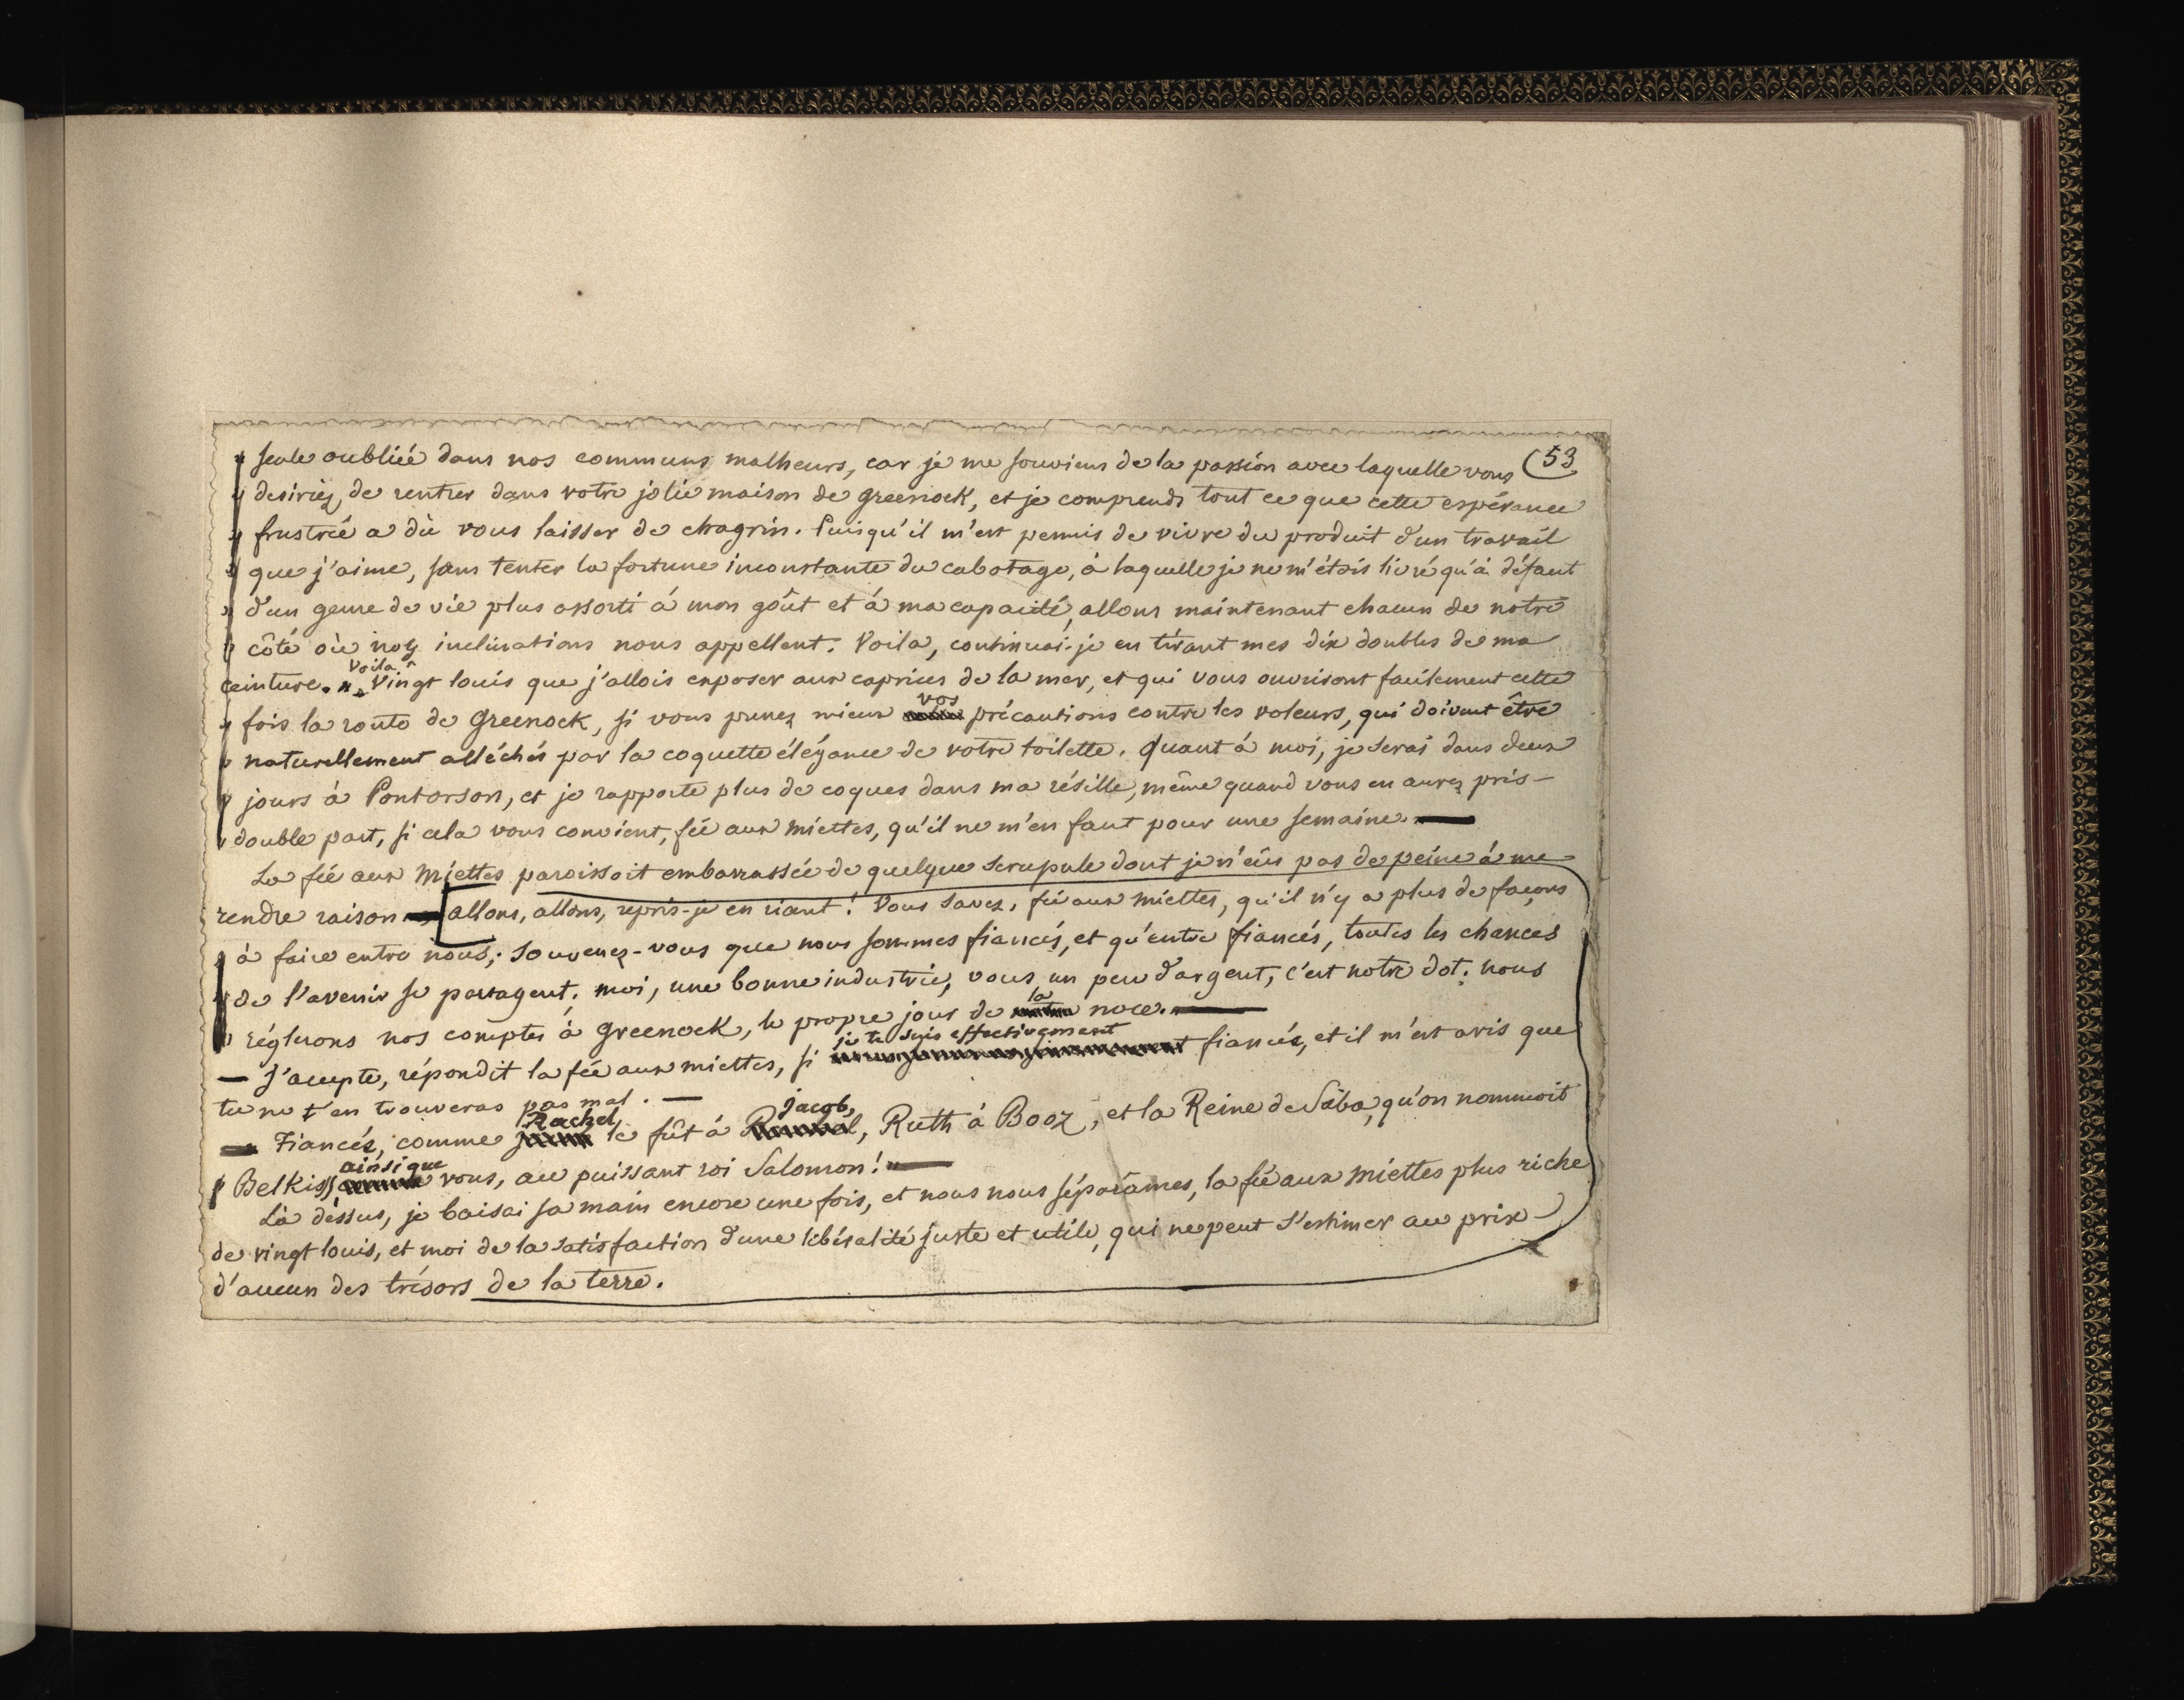 seule oubliée dans nos communs malheurs, car je me souviens de la passion avec laquelle vous (53
desiriez de rentrer dans votre jolie maison de Greenock, et je comprends tout ce que cette espérance
frustrée a dû vous laisser de chagrin. Puisqu'il m'est permis de vivre du produit d'un travail
que j'aime, sans tenter la fortune inconstante du cabotage, à laquelle je ne m'étois livré qu'à défaut
d'un genre de vie plus assorti à mon goût et à ma capacité, allons maintenant chacun de notre
côté où nos inclinations nous appellent. Voila, continuai-je en tirant mes dix doubles de ma
voila
ceinture. Vingt louis que j'allois exposer aux caprices de la mer, et qui vous ouvriront facilement cette
vos
fois la route de Greenock, si vous prenez mieux précautions contre les voleurs, qui doivent être
naturellement alléchés par la coquette élégance de votre toilette. Quant à moi, je serai dans deux
jours à Pontorson, et je rapporte plus de coques dans ma résille, même quand vous en aurez pris
double part, si cela vous convient, fée aux miettes, qu'il ne m'en faut pour une semaine. —
La fée aux Miettes paroissoit embarrassée de quelque scrupule dont je n'eus pas de peine à me
rendre raison — allons, allons, repris-je en riant! Vous savez, fée aux miettes, qu'il n'y a plus de façons
à faire entre nous; souvenez-vous que nous sommes fiancés, et qu'entre fiancés, toutes les chances
de l'avenir se partagent. moi, une bonne industrie, vous un peu d'argent, c'est notre dot. nous
la
réglerons nos comptes à Greenock, le propre jour de noce. —
je te suis effectivement
— J'accepte, répondit la fée aux miettes, si fiancée, et il m'est avis que
tu ne t'en trouveras pas mal. —
Rachel Jacob,
— Fiancés, comme le fût à Ruth à Booz, et la Reine de Saba, qu'on nommoit
ainsi que
Belkiss, vous, au puissant roi Salomon! —
Là dessus, je baisai sa main encore une fois, et nous nous séparâmes, la fée aux miettes plus riche
de vingt louis, et moi de la satisfaction d'une libéralité juste et utile, qui ne peut s'estimer au prix
d'aucun des trésors de la terre.